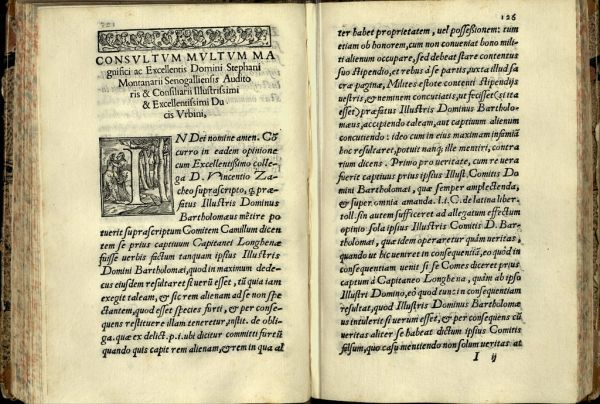 CONSVLTVM MVLTVM MA
gnifici ac Excellentis Domini Stephani
Montanarii Senogalliensis Audito
ris & Consiliarii Illustrissimi
& Excellentissimi Du
cis Vrbini,
IN Dei nomine amen. Cō
curro in eadem opinione
cum Excellentißimo colle-
ga D. Vincentio Za
cheo suprascripto, q̃. præ-
fatus Illustris Dominus
Bartholomæus mẽtire po
tuerit suprascriptum Comitem Camillum dicen
tem se prius captiuum Capitanei Longhenæ
fuisse uerbis factum tanquam ipsius Illustris
Domini Bartholomæi, quod in maximum dede-
cus eiusdem resultaret si uerũ esset, tũ quia iam
exegit taleam, & sic rem alienam ad se non spe
ctantem, quod esset species furti, & per conse-
quens restituere illam teneretur, instit. de obli-
ga. quæ ex delict. p. i. ubi dicitur committi furtũ
quando quis capit rem alienam, & rem in qua al
126
ter habet proprietatem, uel possessionem: tum
etiam ob honorem, cum non conueniat bono mili-
ti alienum occupare, sed debeat stare contentus
suo stipendio, et rebus à se partis, iuxta illud sa
cræ paginæ, Milites estote contenti stipendijs
uestris, & neminem concutiatis, ut fecisset (si ita
esset) præfatus Illustris Dominus Bartholo-
mæus, accipiendo taleam, aut captiuum alienum
concutiendo: ideo cum in eius maximam infamiã
hoc resultaret, potuit nanq; ille mentiri, contra-
rium dicens. Primo pro ueritate, cum re uera
fuerit captiuus prius ipsius Illust. Comitis D.
mini Bartholomæi, quæ semper amplectenda,
& super omnia amanda. l. i. C. de latina liber-
toll. sin autem sufficeret ad allegatum effectum
opinio sola ipsius Illustris Comitis D. Bar-
tholomæi, quæ idem operaretur quàm ueritas,
quando ut hic ueniret in consequentiã, eo quòd in
consequentiam uenit si se Comes diceret prius
captum à Capitaneo Longhena, quàm ab ipso
Illustri Domino, eò quod tunc in consequentiam
resultat, quod Illustris Dominus Bartholomæ
us intulerit si uerum esset, & per consequens cũ
ueritas aliter se habeat dictum ipsius Comitis
falsum, quo casu mentiendo non solum ueritas at
I ij